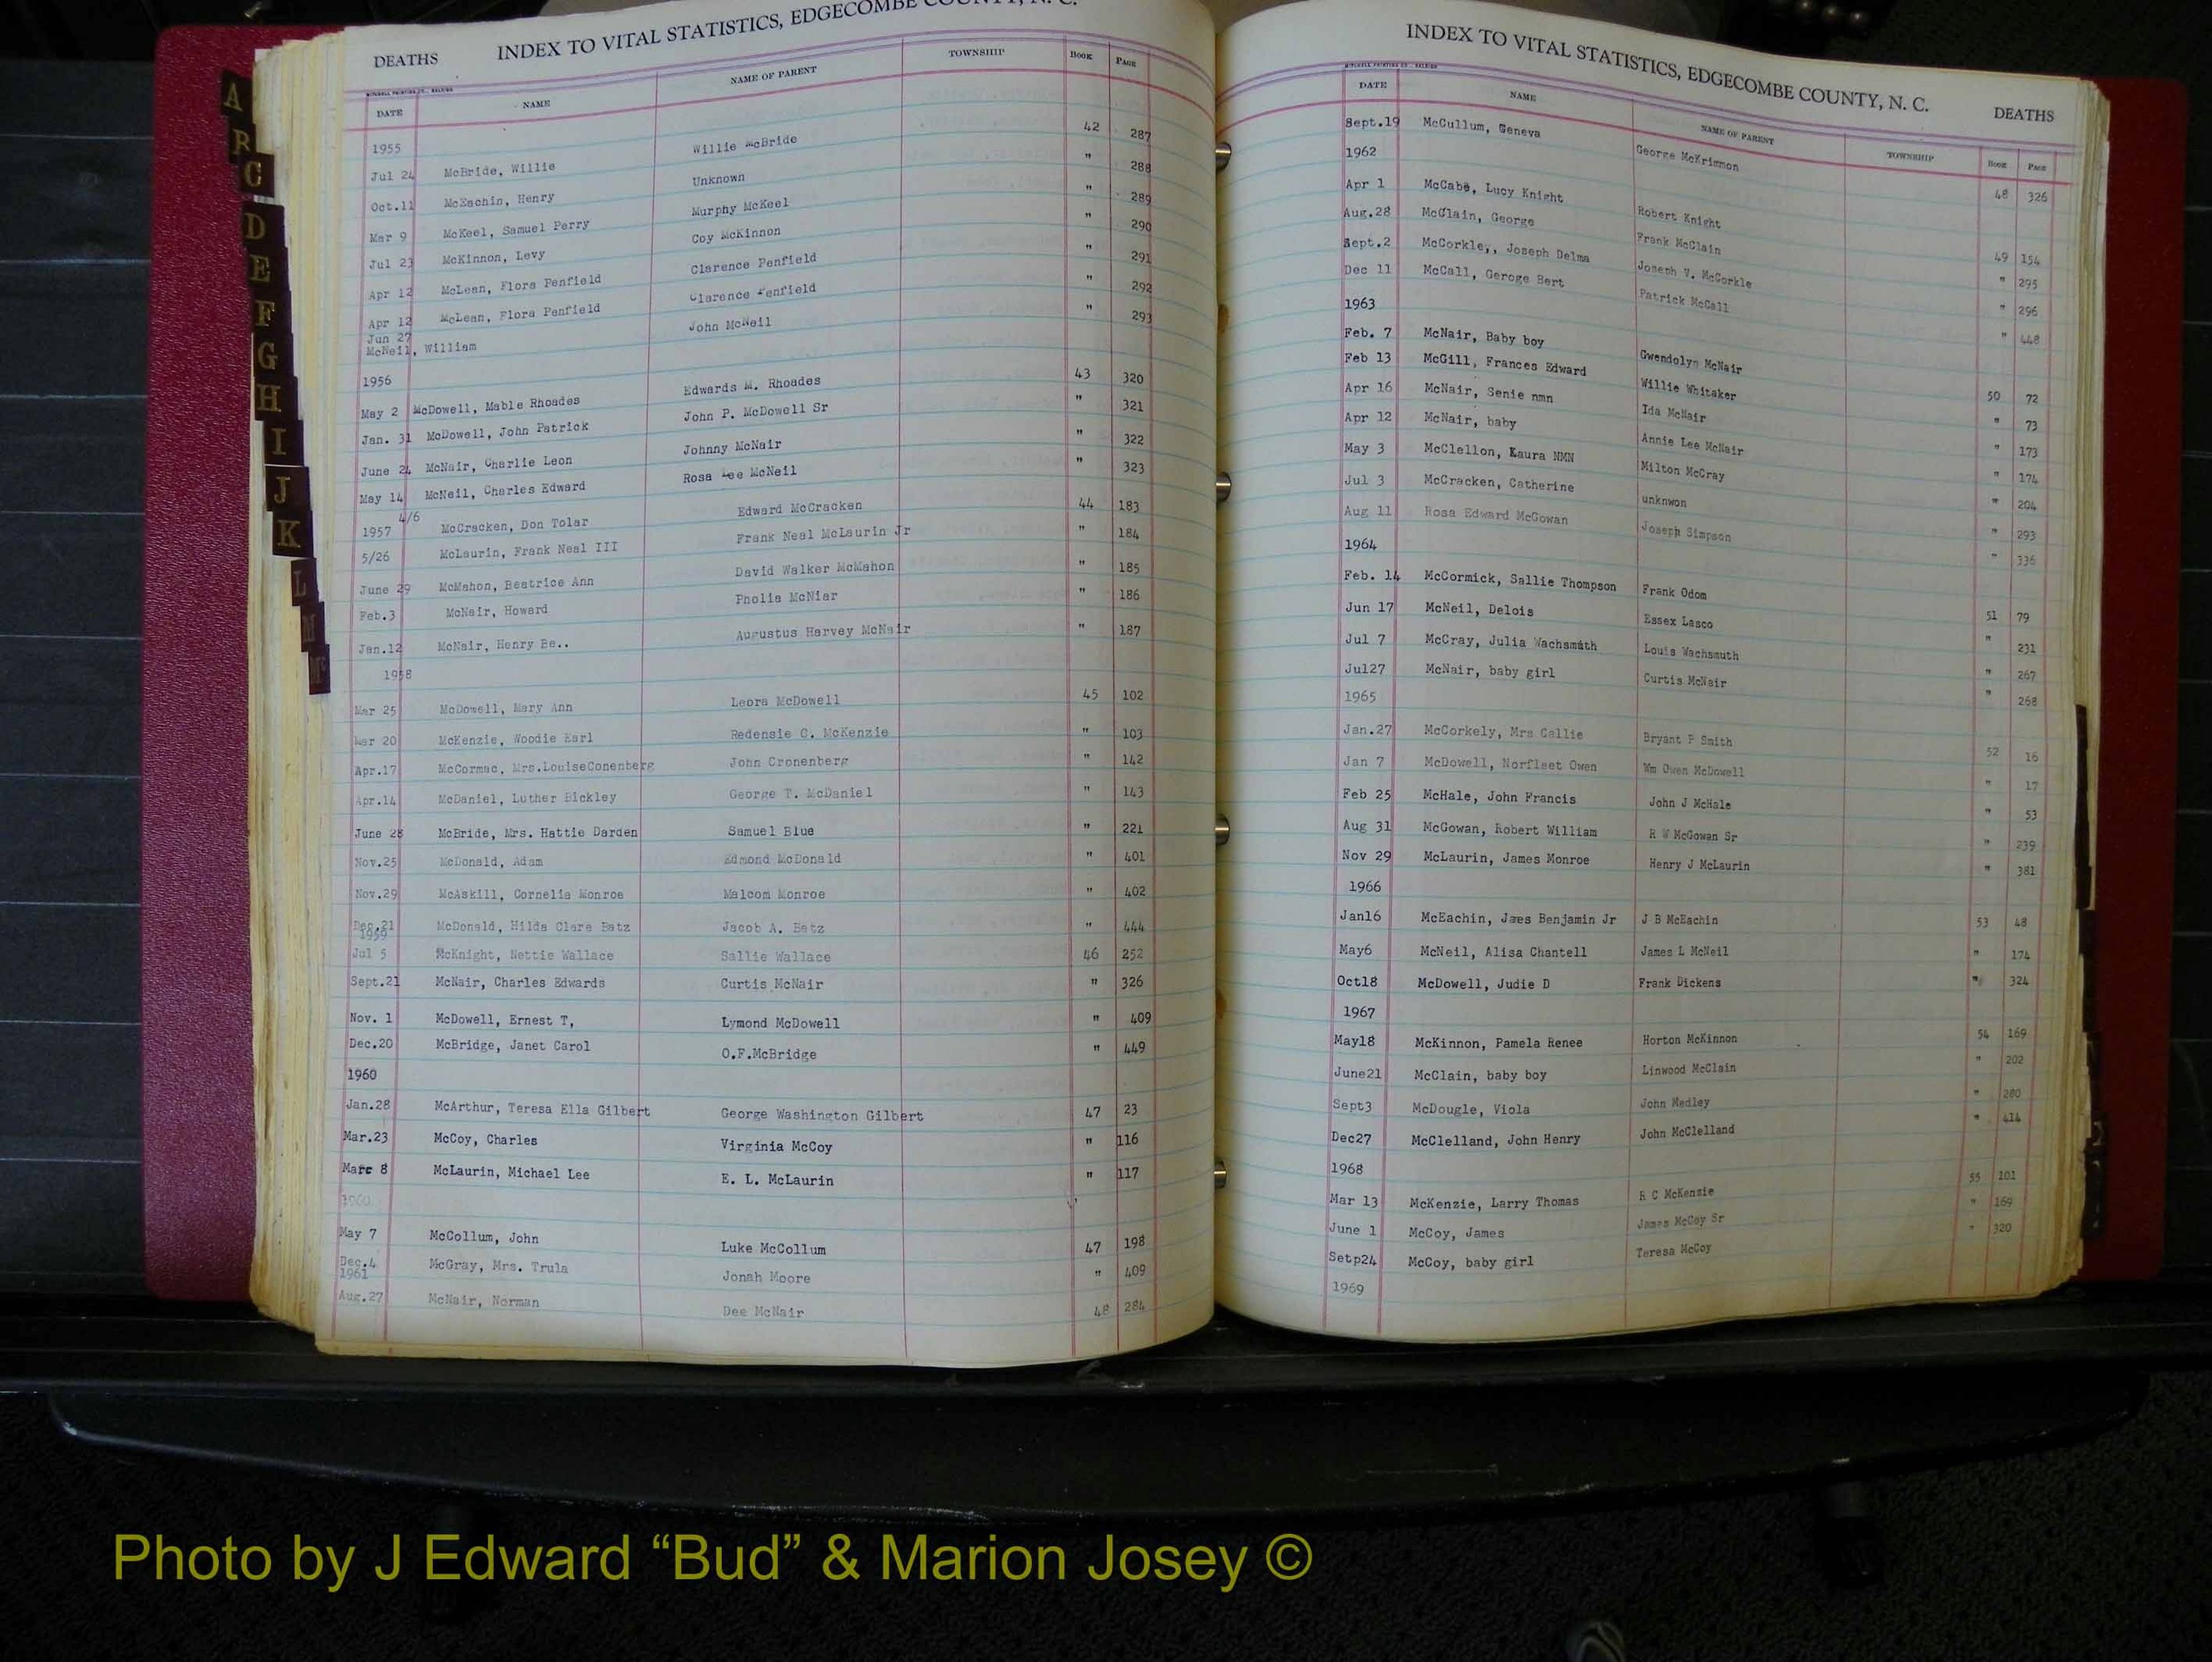 DEATHS INDEX TO VITAL STATISTICS, EDGECOMBE COUNTY, N. C.
MITCHELL PRINTING CO., RALEIGH
DATE NAME NAME OF PARENT TOWNSHIP BOOK PAGE
1955
Jul 24 McBride, Willie Willie McBride 42 287
Oct.11 McEachin, Henry Unknown " 288
Mar 9 McKeel, Samuel Perry Murphy McKeel " 289
Jul 23 McKinnon, Levy Coy McKinnon " 290
Apr 12 McLean, Flora Penfield Clarence Penfield " 291
Apr 12 McLean, Flora Penfield Clarence Penfield " 292
Jun 27 John McNeil " 293
McNeil, William
1956
May 2 McDowell, Mable Rhoades Edwards M. Rhoades 43 320
Jan. 31 McDowell, John Patrick John P. McDowell Sr " 321
June 24 McNair, Charlie Leon Johnny McNair " 322
May 14 McNeil, Charles Edward Rosa Lee McNeil " 323
4/6
1957 McCracken, Don Tolar Edward McCracken 44 183
5/26 McLaurin, Frank Neal III Frank Neal McLaurin Jr " 184
June 29 McMahon, Beatrice Ann David Walker McMahon " 185
Feb.3 McNair, Howard Pholia McNiar " 186
Jan.12 McNair, Henry Be.. Augustus Harvey McNair " 187
1958
Mar 25 McDowell, Mary Ann Leora McDowell 45 102
Mar 20 McKenzie, Woodie Earl Redensie C. McKenzie " 103
Apr.17 McCormac, Mrs.LouiseConenberg John Cronenberg " 142
Apr.14 McDaniel, Luther Bickley George T. McDaniel " 143
June 28 McBride, Mrs. Hattie Darden Samuel Blue " 221
Nov.25 McDonald, Adam Edmond McDonald " 401
Nov.29 McAskill, Cornelia Monroe Malcom Monroe " 402
Dec.21 McDonald, Hilda Clare Batz Jacob A. Batz " 444
1959
Jul 5 McKnight, Nettie Wallace Sallie Wallace 46 252
Sept.21 McNair, Charles Edwards Curtis McNair " 326
Nov. 1 McDowell, Ernest T, Lymond McDowell " 409
Dec.20 McBridge, Janet Carol O.F.McBridge " 449
1960
Jan.28 McArthur, Teresa Ella Gilbert George Washington Gilbert 47 23
Mar.23 McCoy, Charles Virginia McCoy " 116
Marc 8 McLaurin, Michael Lee E. L. McLaurin " 117
1960
May 7 McCollum, John Luke McCollum 47 198
Dec.4 McGray, Mrs. Trula Jonah Moore " 409
1961
Aug.27 McNair, Norman Dee McNair 48 284
INDEX TO VITAL STATISTICS, EDGECOMBE COUNTY, N. C. DEATHS
MITCHELL PRINTING CO., RALEIGH
DATE NAME NAME OF PARENT TOWNSHIP BOOK PAGE
Sept.19 McCullum, Geneva George McKrimmon 48 326
1962
Apr 1 McCabe, Lucy Knight Robert Knight 49 154
Aug.28 McClain, George Frank McClain " 295
Sept.2 McCorkle,, Joseph Delma Joseph V. McCorkle " 296
Dec 11 McCall, Geroge Bert Patrick McCall " 448
1963
Feb. 7 McNair, Baby boy Gwendolyn McNair 50 72
Feb 13 McGill, Frances Edward Willie Whitaker " 73
Apr 16 McNair, Senie nmn Ida McNair " 173
Apr 12 McNair, baby Annie Lee McNair " 174
May 3 McClellon, Laura NMN Milton McCray " 204
Jul 3 McCracken, Catherine unknwon " 293
Aug 11 Rosa Edward McGowan Joseph Simpson " 336
1964
Feb. 14 McCormick, Sallie Thompson Frank Odom 51 79
Jun 17 McNeil, Delois Essex Lasco " 231
Jul 7 McCray, Julia Wachsmuth Louis Wachsmuth " 267
Jul27 McNair, baby girl Curtis McNair " 268
1965
Jan.27 McCorkely, Mrs Callie Bryant P Smith 52 16
Jan 7 McDowell, Norfleet Owen Wm Owen McDowell " 17
Feb 25 McHale, John Francis John J McHale " 53
Aug 31 McGowan, Robert William R W McGowan Sr " 239
Nov 29 McLaurin, James Monroe Henry J McLaurin " 381
1966
Jan16 McEachin, James Benjamin Jr J B McEachin 53 48
May6 McNeil, Alisa Chantell James L McNeil " 174
Oct18 McDowell, Judie D Frank Dickens " 324
1967
May18 McKinnon, Pamela Renee Horton McKinnon 54 169
June21 McClain, baby boy Linwood McClain " 202
Sept3 McDougle, Viola John Medley " 280
Dec27 McClelland, John Henry John McClelland " 414
1968
Mar 13 McKenzie, Larry Thomas R C McKenzie 55 101
June 1 McCoy, James James McCoy Sr " 169
Setp24 McCoy, baby girl Teresa McCoy " 320
1969
A
B
C
D
E
F
G
H
I
J
K
L
M
Mc
Photo by J Edward “Bud” & Marion Josey ©